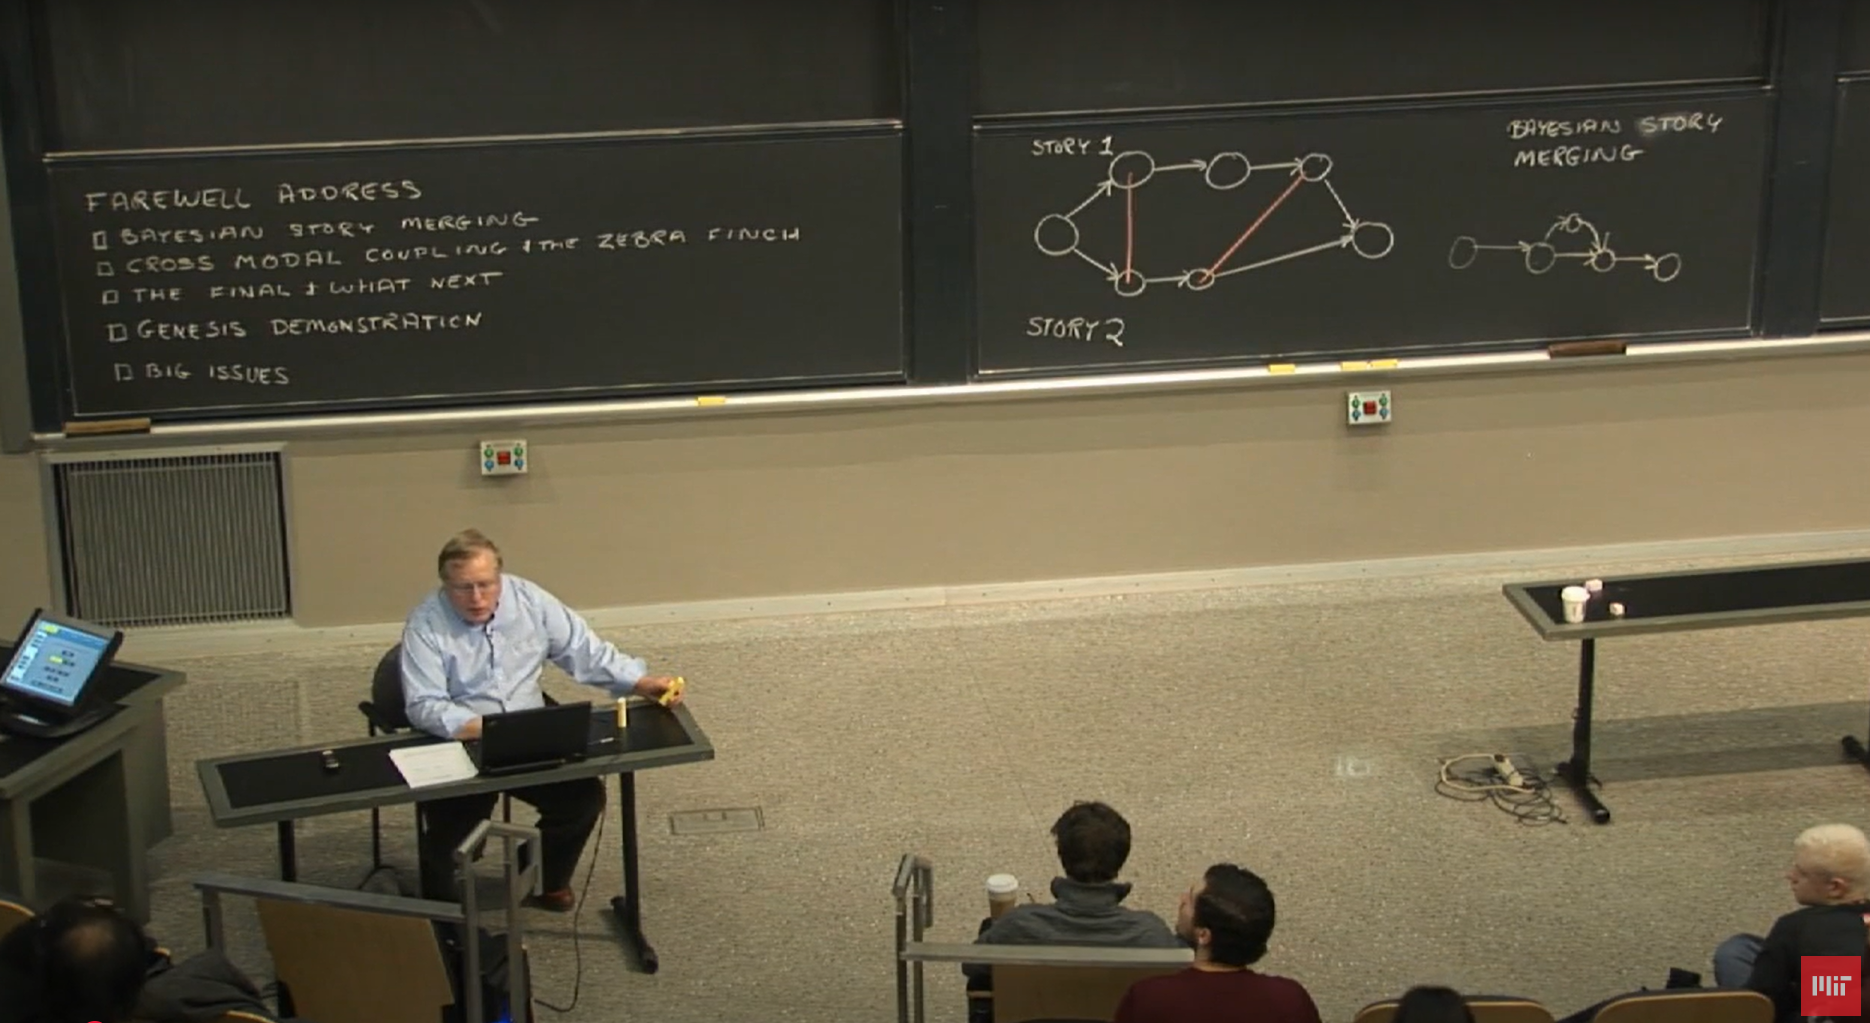 FAREWELL ADDRESS
BAYESIAN STORY MERGING
CROSS MODAL COUPLING & THE ZEBRA FINCH
THE FINAL & WHAT NEXT
GENESIS DEMONSTRATION
BIG ISSUES
STORY 1
STORY 2
BAYESIAN STORY
MERGING
MIT